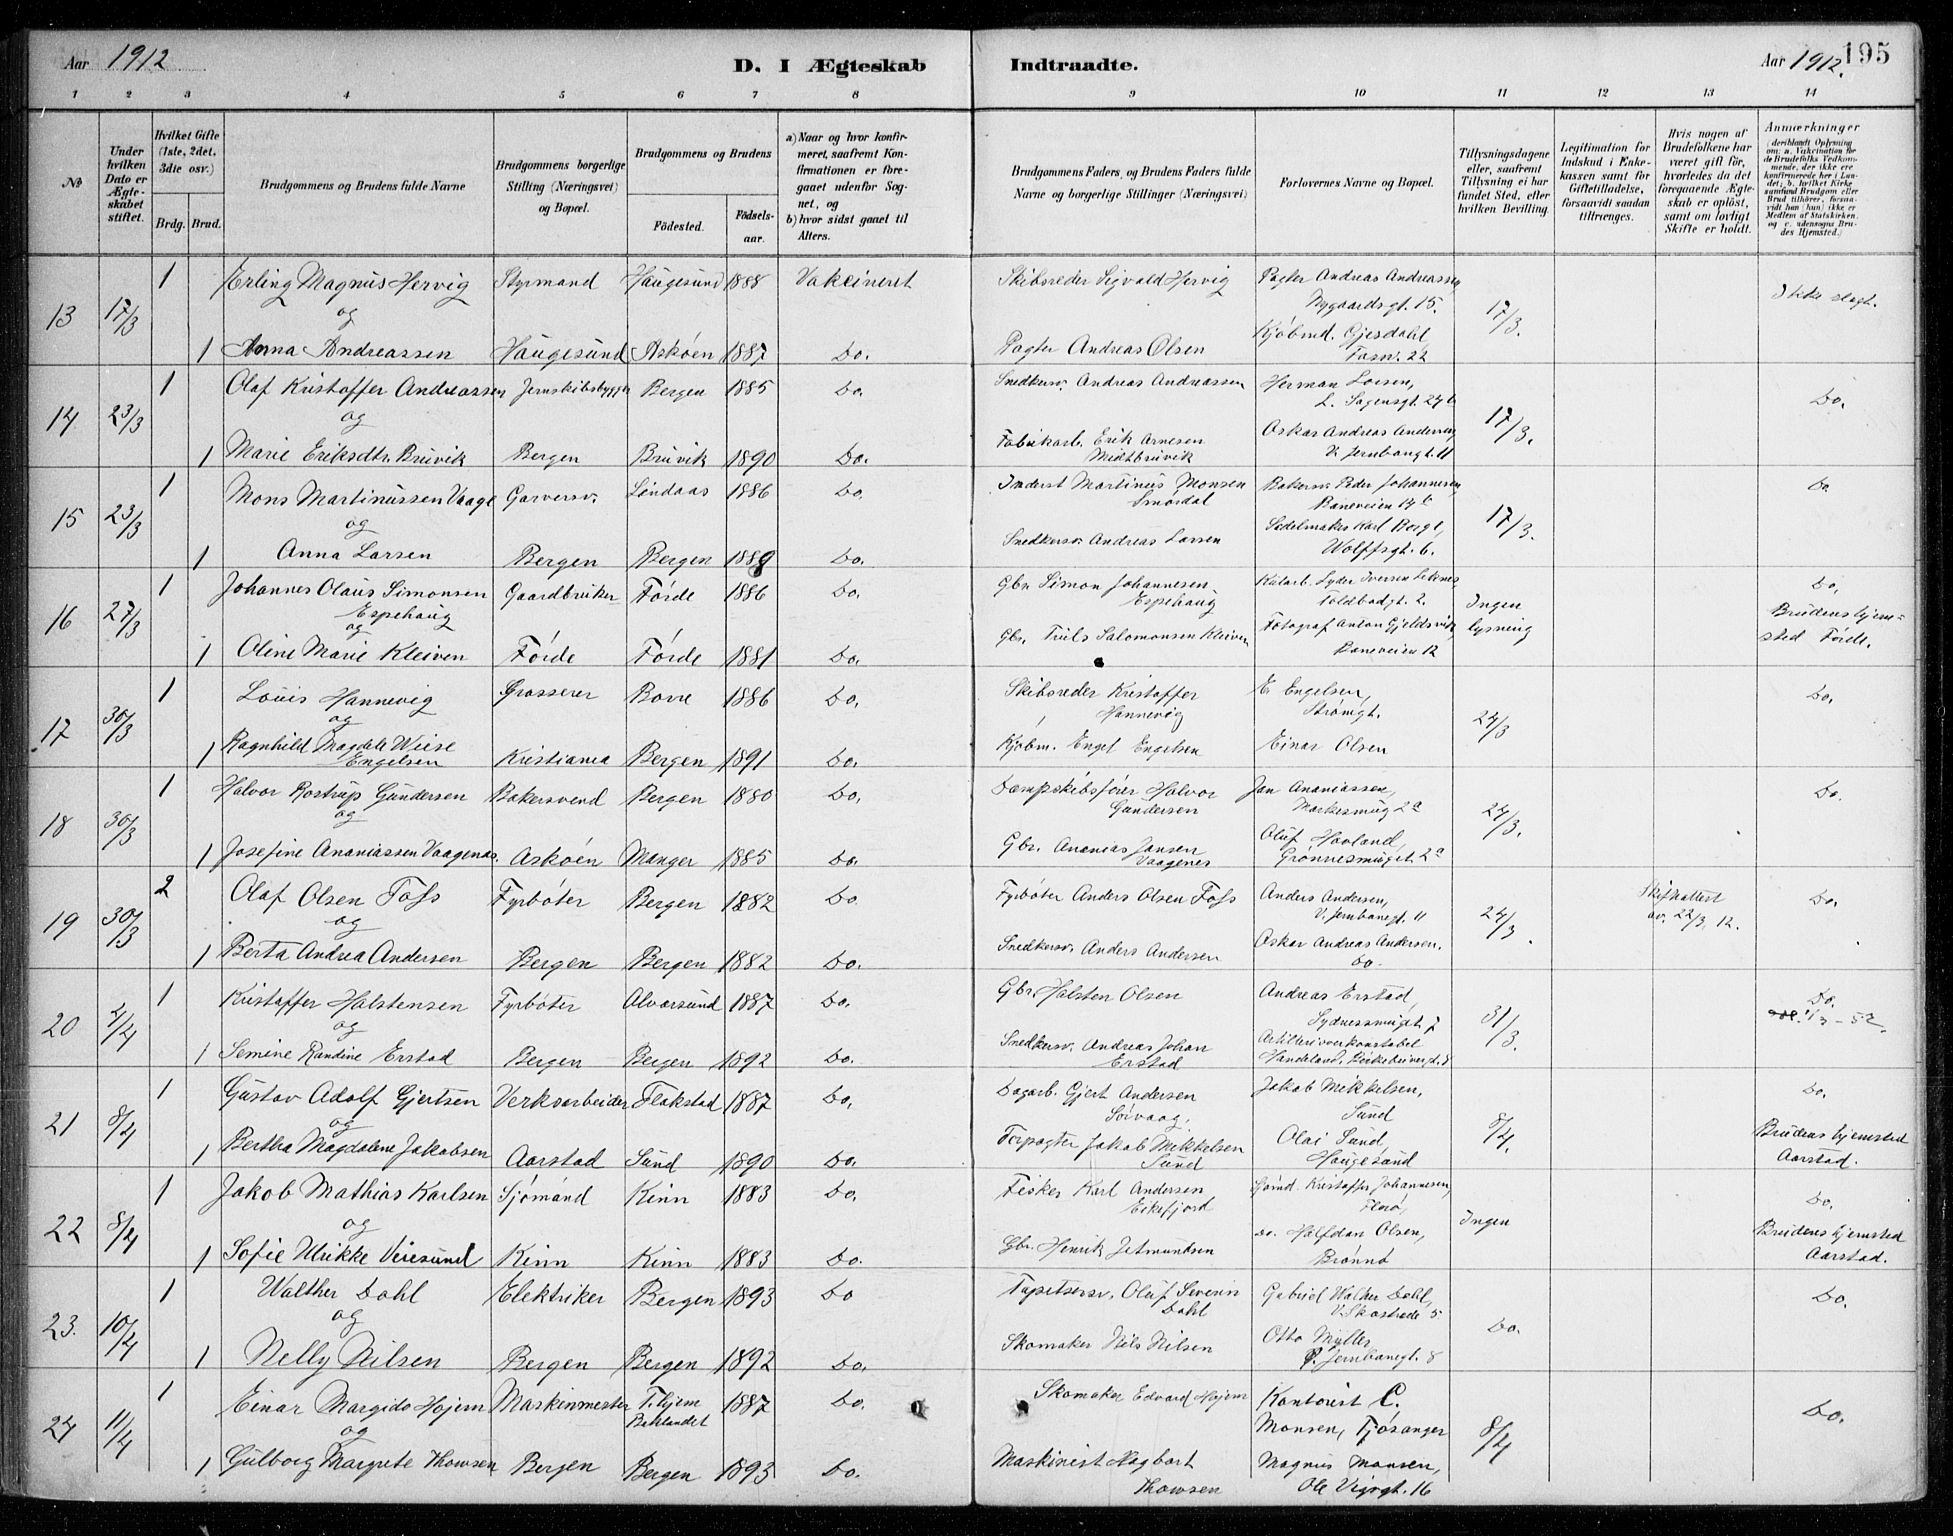 Aar 1912
D. I Ægteskab Indtraadte.
Aar 1912.
195
1 2 3 4 5 6 7 8 9 10 11 12 13 14
No
Under hvilken Dato er Ægteskabet stiftet.
Hvilket Gifte (1ste, 2det, 3die osv.)
Brdg. Brud.
Brudgommens og Brudens fulde Navne
Brudgommens borgerlige Stilling (Næringsvei) og Bopæl.
Brudgommens og Brudens
Fødested. Fødselsaar.
a) Naar og hvor konfirmeret, saafremt Konfirmationen er foregaaet udenfor Sognet, og
b) hvor sidst gaaet til Alters.
Brudgommens Faders, og Brudens Faders fulde Navne og borgerlige Stillinger (Næringsvei)
Forlovernes Navne og Bopæl.
Tillysningsdagene eller, saafremt Tillysning ei har fundet Sted, efter hvilken Bevilling.
Legitimation for Indskud i Enkekassen samt for Giftetilladelse, forsaavidt saadan tiltrænges.
Hvis nogen af Brudefolkene har været gift før, hvorledes da det foregaaende Ægteskab er opløst, samt om lovligt Skifte er holdt.
Anmærkninger
(deriblandt Oplysning om: a. Vakcination for de Brudefolks Vedkommende, der ikke ere konfirmerede her i Landet; b. hvilket Kirkesamfund Brudgom eller Brud tilhører, forsaavidt han (hun) ikke er Medlem af Statskirken, og c. udensogns Brudes Hjemsted.)
13 17/3 1 Erling Magnus Hervig Styrmand Haugesund 1888 Vakcineret Skibsreder Sigvald Hervig Pagter Andreas Andreassen Nygaardsgt. 15. 17/3. Ikke slegt.
og
1 Anna Andreassen Haugesund Askøen 1887 Do. Pagter Andreas Olsen Kjøbmd. Gjesdahl, 22
14 23/3 1 Olaf Kristoffer Andreassen Jernskibsbygger Bergen 1885 Do. Snedkersv. Andreas Andreassen Herman Larsen, L. Sagensgt. 24b 17/3. Do.
og
1 Marie Eriksdtr. Bruvik Bergen Bruvik 1890 Do. Fabrikarb. Erik Arnesen Midtbruvik Oskar Andreas Andersen V. Jernbanegt. 11
15 23/3 1 Mons Martinussen Vaage Garversv. Lindaas 1886 Do. Inderst Martinus Monsen Smørdal Bakersv. Peder Johannesen, Baneveien 17b 17/3. Do.
og
1 Anna Larsen Bergen Bergen 1889 Do. Snedkersv. Andreas Larsen Sadelmaker Karl Borgt, Wolffsgt. 6.
16 27/3 1 Johannes Olaus Simonsen Espehaug Gaardbruker Førde 1886 Do. Gbr. Simon Johannesen, Espehaug Lyder Iversen Leknes Toldbodgt. 2. Ingen lysning Do. Brudens hjemsted Førde.
og
1 Oline Marie Kleiven Førde Førde 1881 Do. Gbr. Truls Salomonsen Kleiven Fotograf Anton Gjeldsvik Baneveien 12
17 30/3 1 Louis Hannevig Grosserer Borre 1886 Do. Skibsreder Kristoffer Hannevig E. Engelsen, Strømgt. 24/3 Do.
og
1 Ragnhild Magdele Wiese Engelsen Kristiania Bergen 1891 Do. Kjøbm. Engel Engelsen Einar Olsen
18 30/3 1 Halvor Rostrup Gundersen Bakersvend Bergen 1880 Do. Dampskibsfører Halvor Gundersen Jan Ananiassen, Markesmug 2a 24/3. Do.
og
1 Josefine Ananiassen Vaagenes. Askøen Manger 1885 Do. Gbr. Ananias Jansen Vaagenes Oluf Hovland, Grønnesmuget 2a
19 30/3 2 Olaf Olsen Foss Fyrbøter Bergen 1882 Do. Fyrbøter Anders Olsen Foss Anders Andersen, V. Jernbanegt. 11 24/3. Skifteattest av. 22/3. 12. Do.
og
1 Berta Andrea Andersen Bergen Bergen 1882 Do. Snedkersv. Anders Andersen Oskar Andreas Andersen. Do.
20 4/4 1 Kristoffer Halstensen Fyrbøter Alversund 1887 Do. Gbr. Halsten Olsen Andreas Erstad, Sydnessmuget 7 31/3. Do. 1/3 - 52.
og
1 Semine Randine Erstad Bergen Bergen 1892 Do. Snedkersv. Andreas Johan Erstad Artilleriverkonstabel Handeland,
21 8/4 1 Gustav Adolf Gjertsen Verksarbeider Flakstad 1887 Do. Dagarb. Gjert Andersen Sørvaag. Jakob Mikkelsen, Sund 8/4. Do.
og
1 Bertha Magdalene Jakobsen Aarstad Sund 1890 Do. Jakob Mikkelsen Sund Olai Sund, Haugesund Brudens hjemsted Aarstad.
22 8/4 1 Jakob Mathias Karlsen Sjømand Kinn 1883 Do. Fisker Karl Andersen Eikefjord Sjømd. Kristoffer Johannesen, Florø, Ingen Do.
og
1 Sofie Ulrikke Veiesund Kinn Kinn 1883 Do. Gbr. Henrik Jetmundsen Do. Halfdan Olsen, Brønnø Brudens hjemsted Aarstad.
23. 10/4 1 Walther Dahl Elektriker Bergen 1893 Do Tapetsersv. Oluf Severin Dahl Gabriel Walther Dahl, V. Skostræde 5 Do. Do.
og
1 Nelly Nilsen Bergen Bergen 1892 Do. Skomaker Nils Nilsen Otto Müller, Jernbanegt. 8
24 11/4 1 Einar Margido Hojem Maskinmester 1887 Do. Skomaker Edvard Hojem Kontorist C. Monsen, Fjøsanger 8/4 Do.
og
1 Gulborg Margrete Thowsen Bergen Bergen 1893 Do. Maskinist Hagbart Thowsen Magnus Monsen, Ole Vigsgt. 16